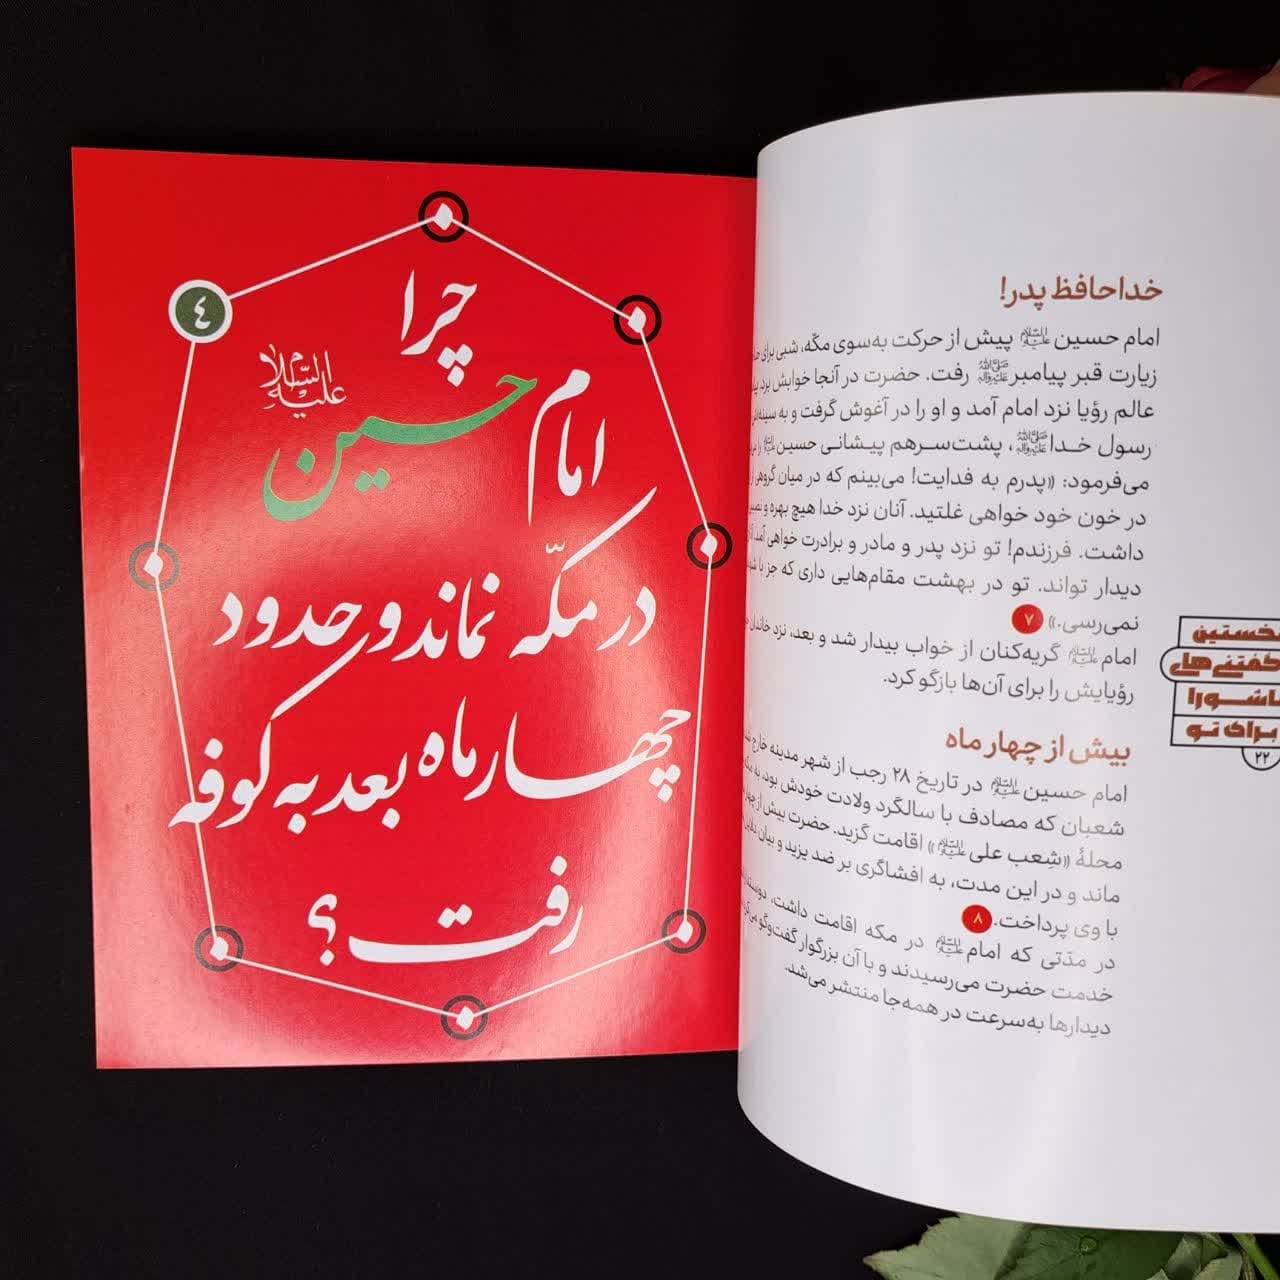 خداحافظ پدر!
امام حسین علیه‌السلام پیش از حرکت به‌سوی مکّه، شبی برای
زیارت قبر پیامبر صلی‌الله‌علیه‌وآله رفت. حضرت در آنجا خوابش برد.
عالم رؤیا نزد امام آمد و او را در آغوش گرفت و به سینه‌اش
رسول خدا صلی‌الله‌علیه‌وآله، پشت‌سرهم پیشانی حسین علیه‌السلام را
می‌فرمود: «پدرم به فدایت! می‌بینم که در میان گروهی
در خون خود خواهی غلتید. آنان نزد خدا هیچ بهره و
داشت. فرزندم! تو نزد پدر و مادر و برادرت خواهی آمد
دیدار تواند. تو در بهشت مقام‌هایی داری که جز با
نمی‌رسی.» ۷
امام علیه‌السلام گریه‌کنان از خواب بیدار شد و بعد، نزد خاندان
رؤیایش را برای آن‌ها بازگو کرد.
بیش از چهار ماه
امام حسین علیه‌السلام در تاریخ ۲۸ رجب از شهر مدینه خارج
شعبان که مصادف با سالگرد ولادت خودش بود، به
محلهٔ «شِعب علی علیه‌السلام» اقامت گزید. حضرت بیش از چهار
ماند و در این مدت، به افشاگری بر ضد یزید و بیان
با وی پرداخت. ۸
در مدّتی که امام علیه‌السلام در مکه اقامت داشت،
خدمت حضرت می‌رسیدند و با آن بزرگوار گفت‌وگو
دیدارها به‌سرعت در همه‌جا منتشر می‌شد.
نخستین
گفتنی‌های
عاشورا
برای تو
۲۲
٤
چرا
امام حسین علیه السلام
در مکّه نماند و حدود
چهار ماه بعد به کوفه
رفت؟